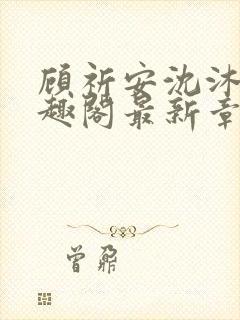 顾祈安沈沐
趣阁最新章
曾鼐